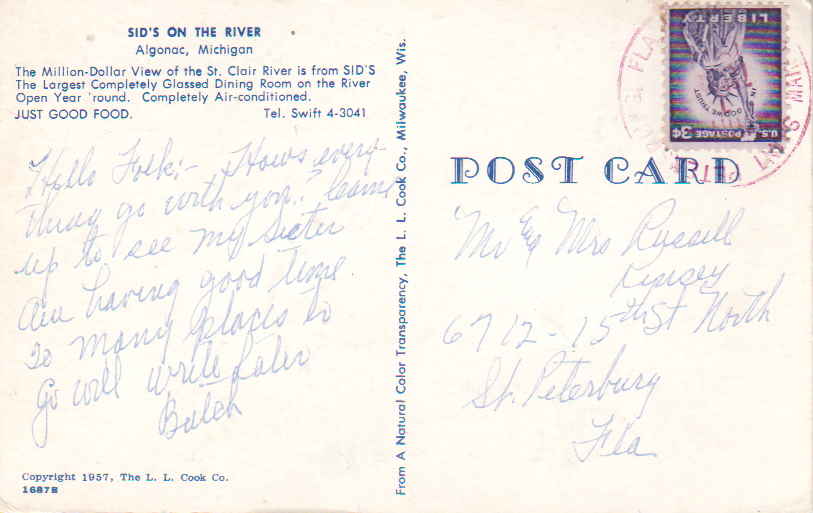 SID'S ON THE RIVER
Algonac, Michigan
The Million-Dollar View of the St. Clair River is from SID'S
The Largest Completely Glassed Dining Room on the River
Open Year 'round. Completely Air-conditioned.
JUST GOOD FOOD. Tel. Swift 4-3041
Hello Folk:- How's every-
thing go with you. Came
up to see my Sister
am having good time
So many places to
Go will write Later
Butch
Copyright 1957, The L. L. Cook Co.
16878
From A Natural Color Transparency, The L. L. Cook Co., Milwaukee, Wis.
LIBERTY
IN GOD WE TRUST
U.S. POSTAGE 3¢
POST CARD
Mr & Mrs Russell
6712-15th St North
St. Peterburg
Fla